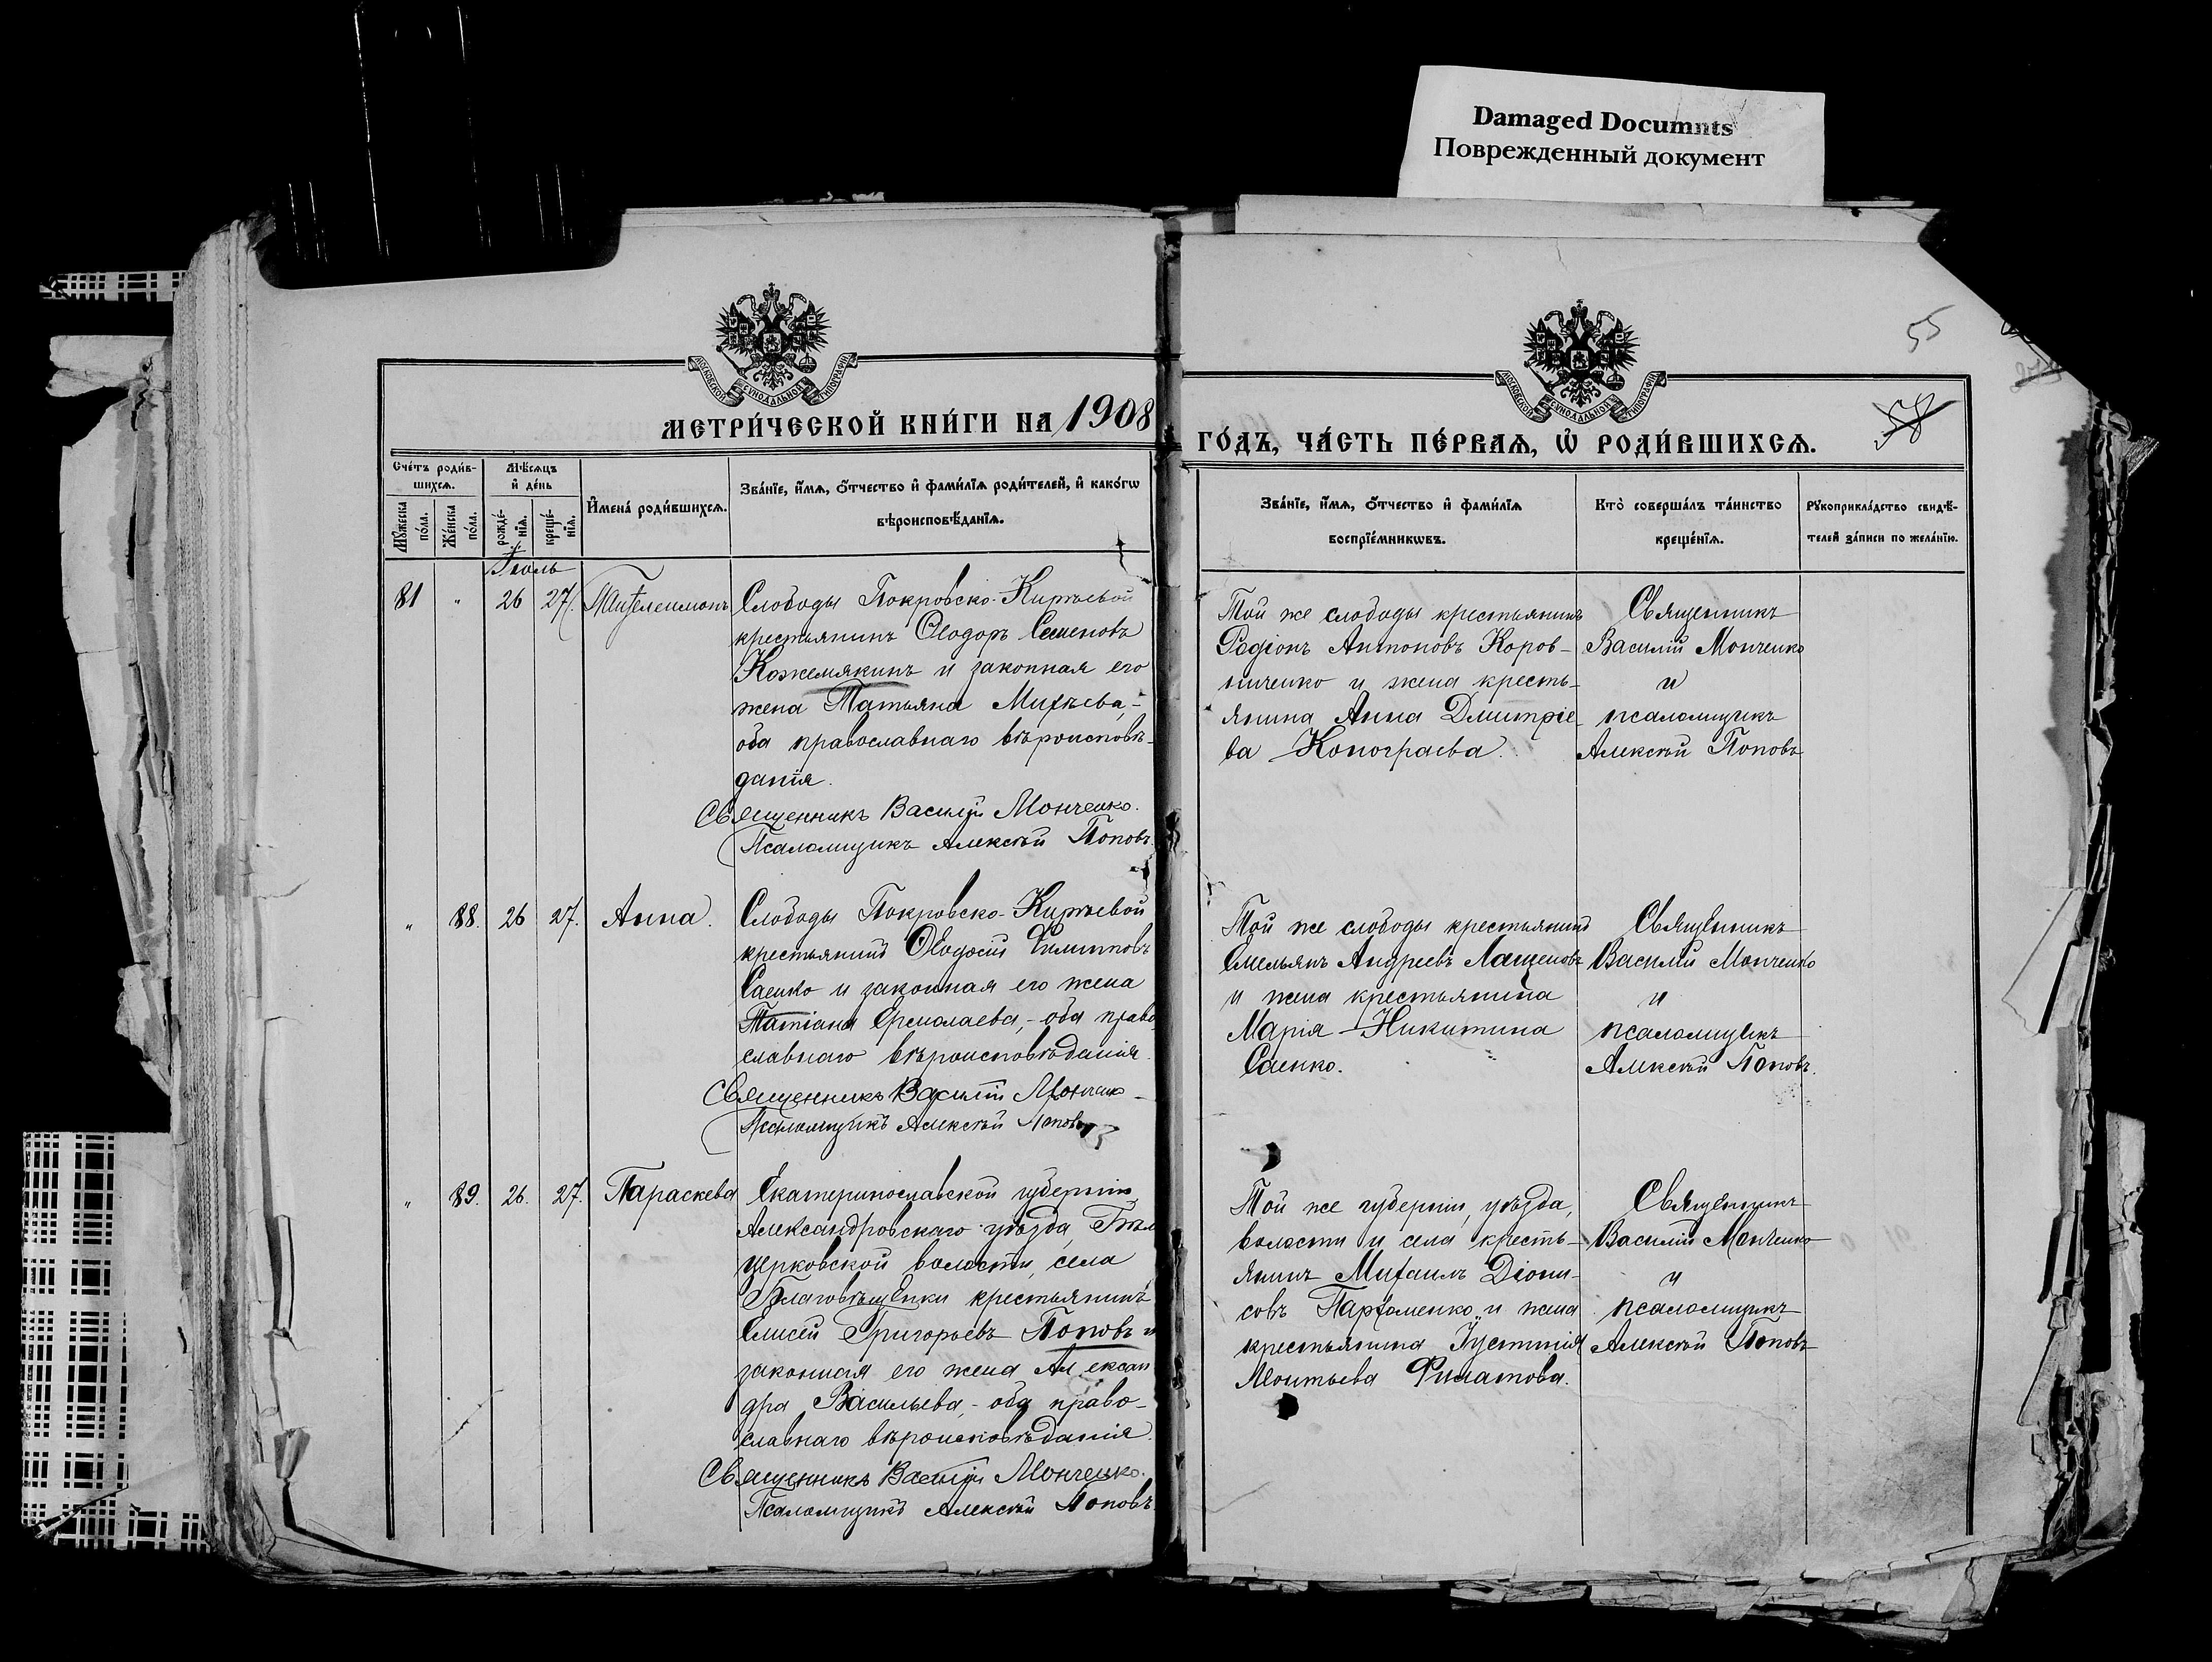 Damaged Documnts
Поврежденный документ
55
58
МОСКОВСКОЙ СѴНОДАЛЬНОЙ ТИПОГРАФІИ
МОСКОВСКОЙ СѴНОДАЛЬНОЙ ТИПОГРАФІИ
МЕТРИ́ЧЕСКОЙ КНИ́ГИ НА 1908
ГО́ДЪ, ЧА́СТЬ ПЕ́РВАѦ, Ѡ҆ РОДИ́ВШИХСѦ.
Сче́тъ роди́в-
шихсѧ.
Мꙋ́жеска по́ла.
Же́нска по́ла.
Мѣ́сѧцъ
и҆ де́нь
рожде́-
нїѧ.
креще́-
нїѧ.
И҆мена̀ роди́вшихсѧ.
Зва́нїе, и҆́мѧ, ѻ҆́тчество и҆ фами́лїѧ роди́телей, и҆ како́гѡ
вѣроисповѣ́данїѧ.
Зва́нїе, и҆́мѧ, ѻ҆́тчество и҆ фами́лїѧ
воспрїе́мникѡвъ.
Кто̀ соверша́лъ та́инство
креще́нїѧ.
Рꙋкоприкла́дство свидѣ́-
телей за́писи по жела́нїю.
Іюль
81 " 26 27. Пантелеимонъ
Слободы Покровско-Киреевой
крестьянинъ Ѳеодоръ Семеновъ
Кожемякинъ и законная его
жена Татьяна Михѣева,-
оба православнаго вѣроисповѣ-
данія.
Священникъ Василій Монченко.
Псаломщикъ Алексѣй Поповъ.
Той же слободы крестьянинъ
Родіонъ Антоновъ Коров-
ниченко и жена кресть-
янина Анна Дмитріе-
ва Конограева.
Священникъ
Василій Монченко
и
псаломщикъ
Алексѣй Поповъ
" 88. 26 27. Анна.
Слободы Покровско-Киреевой
крестьянинъ Ѳеодосій
Саенко и законная его жена
Татіана Ермолаева,- оба право
славнаго вѣроисповѣданія.
Священникъ Василій Монченко
Псаломщикъ Алексѣй Поповъ
Той же слободы крестьянинъ
Емельянъ Андреевъ Лащеновъ
и жена крестьянина
Марія Никитина
Саенко.
Священникъ
Василій Монченко
и
псаломщикъ
Алексѣй Поповъ.
" 89. 26. 27. Параскева
Екатеринославской губерніи,
Александровскаго уѣзда, Бѣло
церковской волости, села
Благовѣщенки крестьянинъ
Елисей Григорьевъ Поповъ и
законная его жена Алексан
дра Васильева,- оба право-
славнаго вѣроисповѣданія.
Священникъ Василій Мончеико.
Псаломщикъ Алексѣй Поповъ
Той же губерніи, уѣзда,
волости и села кресть-
янинъ Михаилъ Діони-
совъ Пархоменко и жена
крестьянина Іустинія
Леонтьева Филатова.
Священникъ
Василій Мончеико
и
псаломщикъ
Алексѣй Поповъ